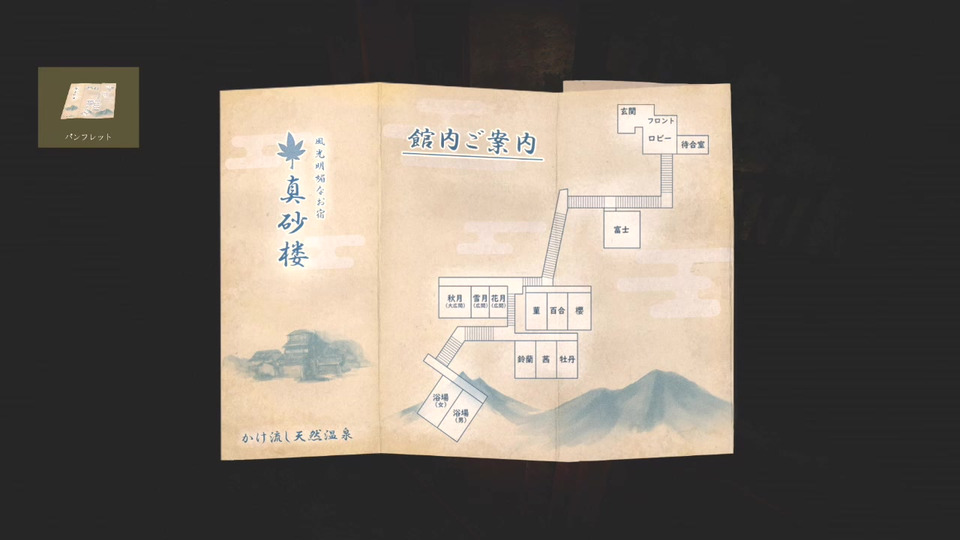 パンフレット
風光明媚なお宿
真砂楼
かけ流し天然温泉
館内ご案内
玄関
フロント
ロビー
待合室
富士
秋月
(大広間)
雪月
(広間)
花月
(広間)
菫
百合
櫻
鈴蘭
茜
牡丹
浴場
(女)
浴場
(男)